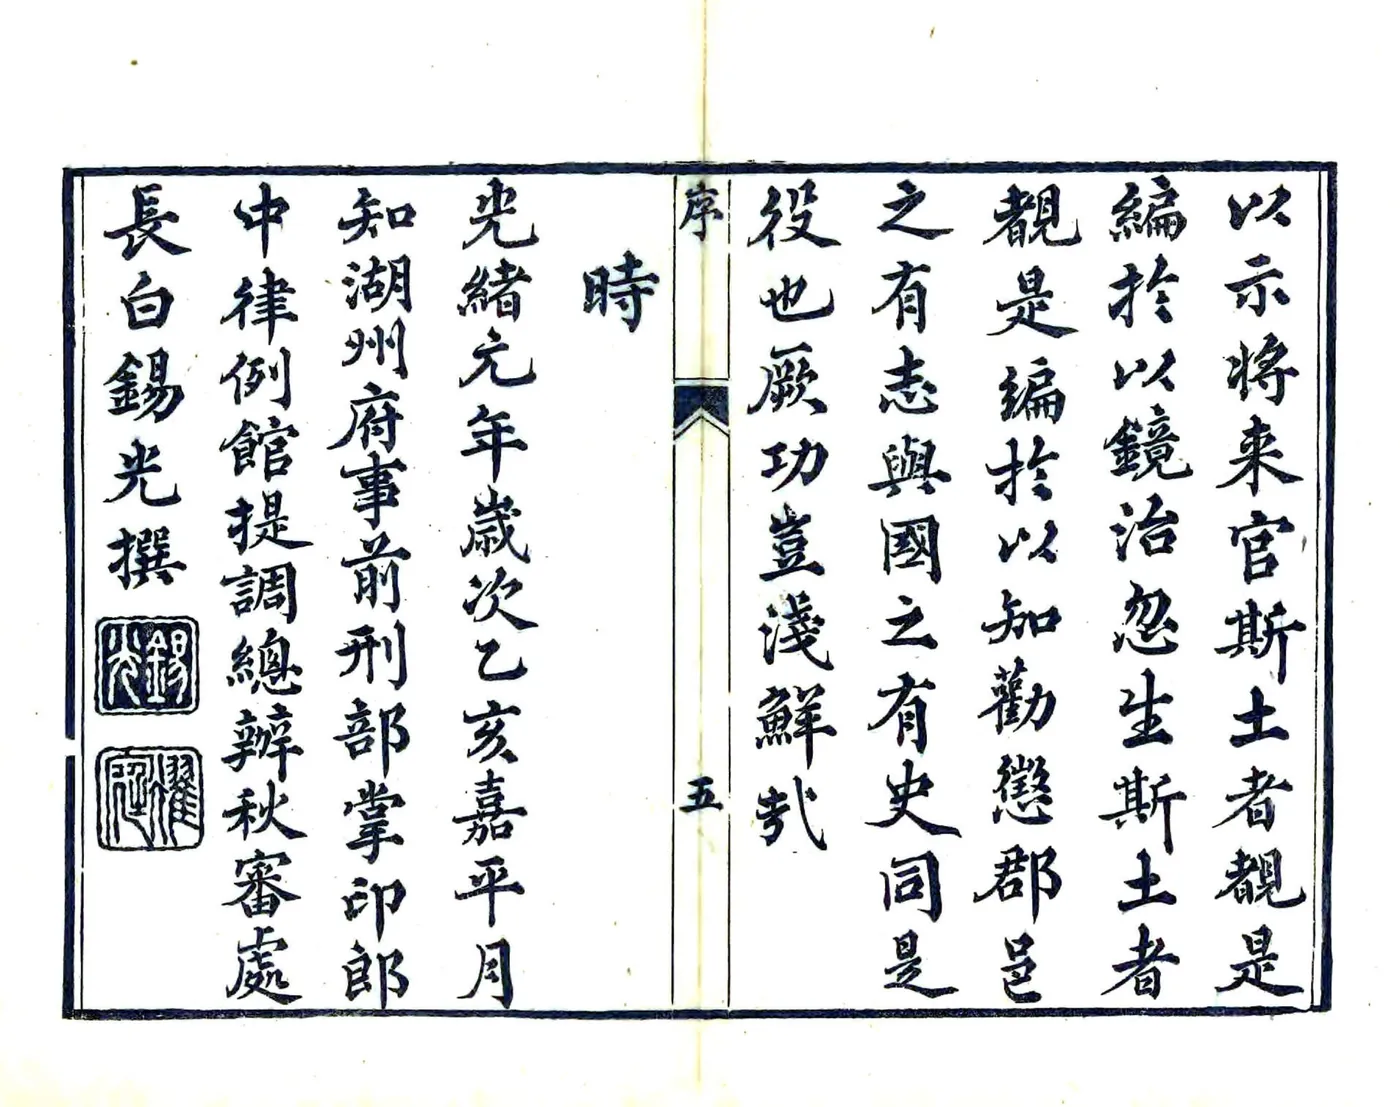 以示将来官斯土者覩是
編扵以鏡治忽生斯土者
覩是編扵以知勸懲郡邑
之有志與國之有史同是
役也厥功豈淺鮮㢤
序
五
時
光緒元年歲次乙亥嘉平月
知湖州府事前刑部掌印郎
中律例館提調總辦秋審處
長白錫光撰
錫光